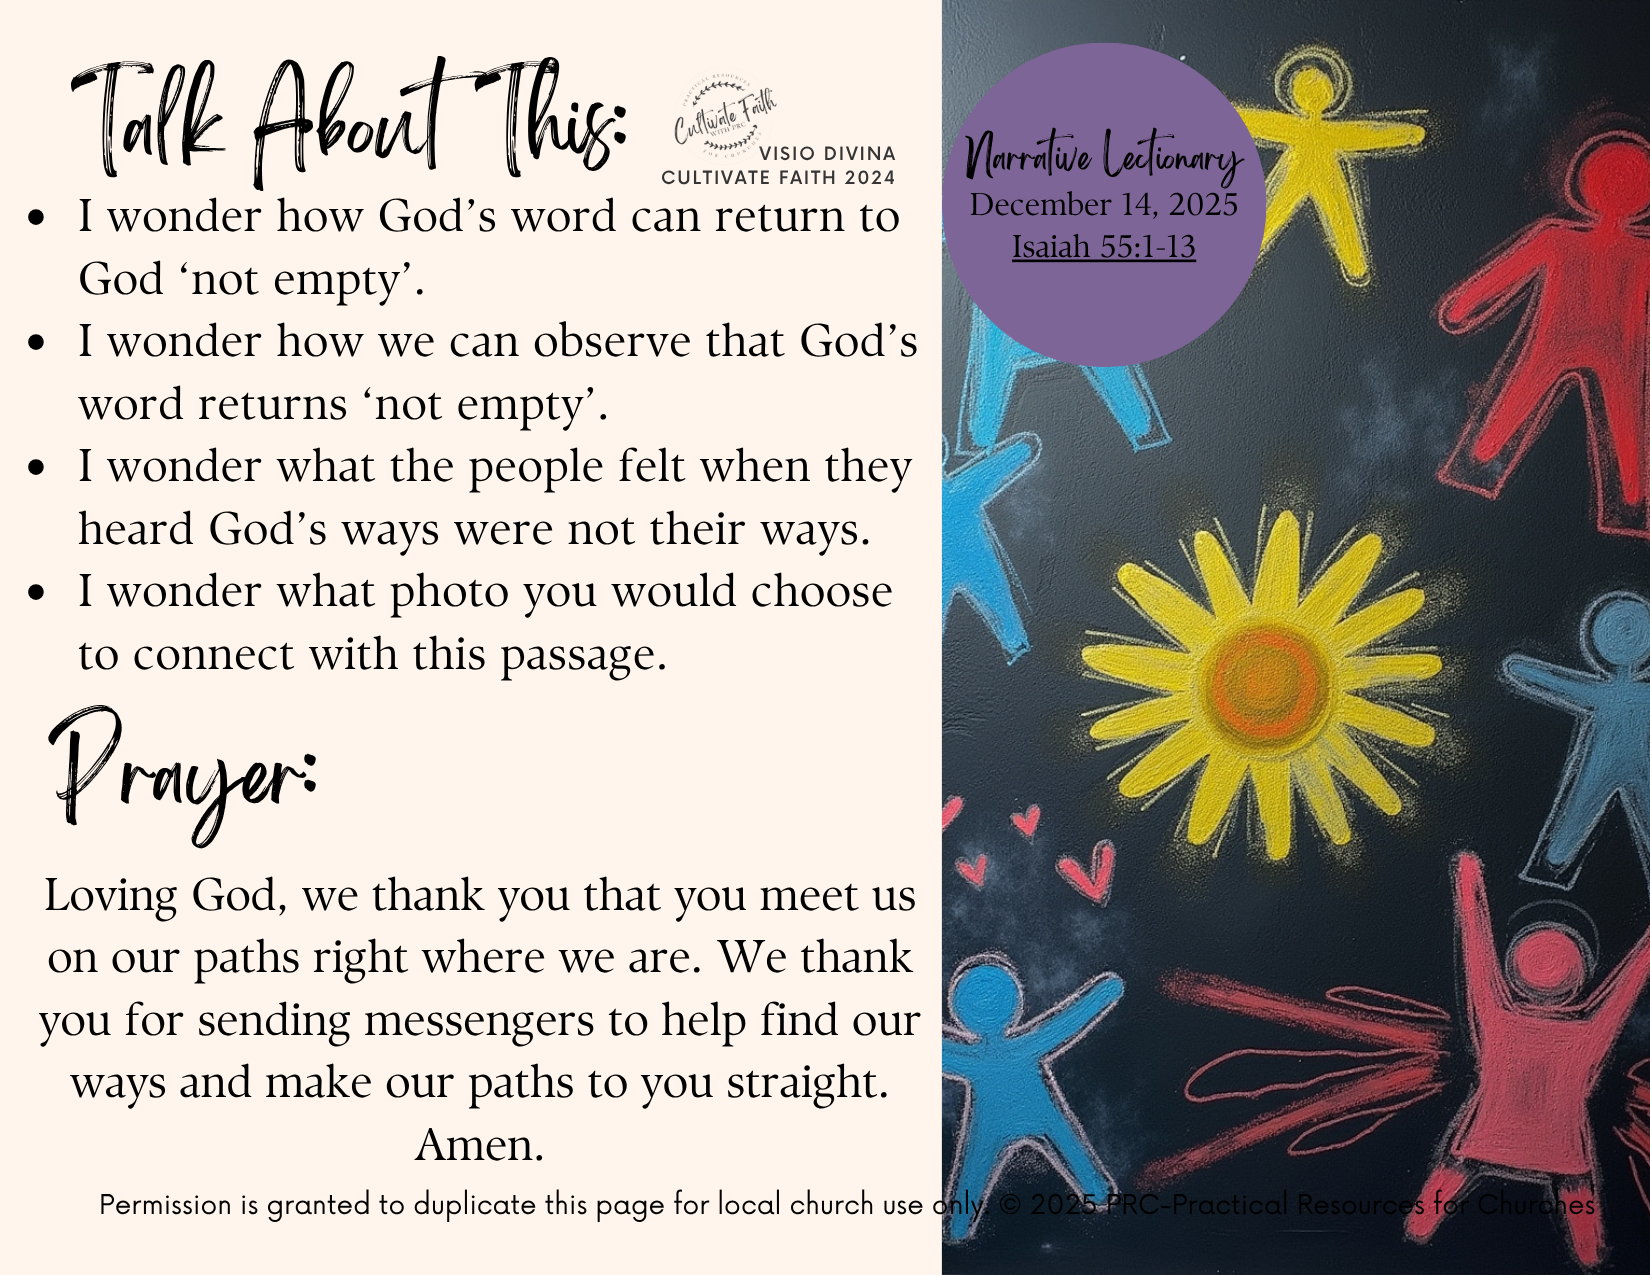 Talk About This:
PRACTICAL RESOURCES
Cultivate Faith
WITH PRC
FOR CHURCHES
VISIO DIVINA
CULTIVATE FAITH 2024
• I wonder how God’s word can return to
God ‘not empty’.
• I wonder how we can observe that God’s
word returns ‘not empty’.
• I wonder what the people felt when they
heard God’s ways were not their ways.
• I wonder what photo you would choose
to connect with this passage.
Prayer:
Loving God, we thank you that you meet us
on our paths right where we are. We thank
you for sending messengers to help find our
ways and make our paths to you straight.
Amen.
Narrative Lectionary
December 14, 2025
Isaiah 55:1-13
Permission is granted to duplicate this page for local church use only. © 2025 PRC-Practical Resources for Churches